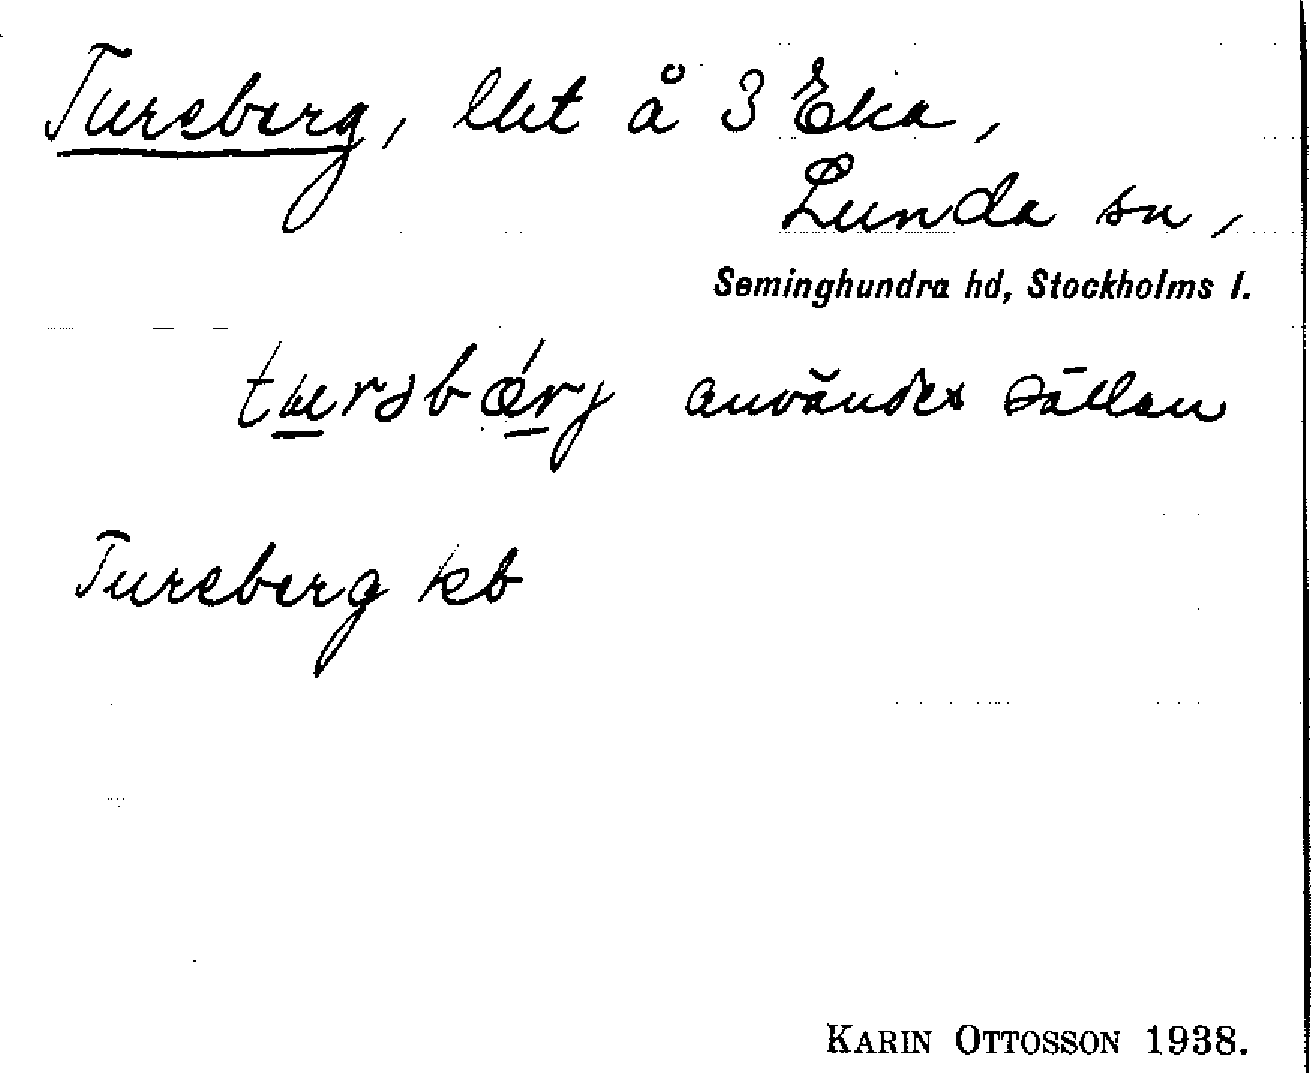 Tureberg, lht å 3 Eka,
Lunda sn,
Seminghundra hd, Stockholms l.
användes sällan
Tureberg kb
KARIN OTTOSSON 1938.